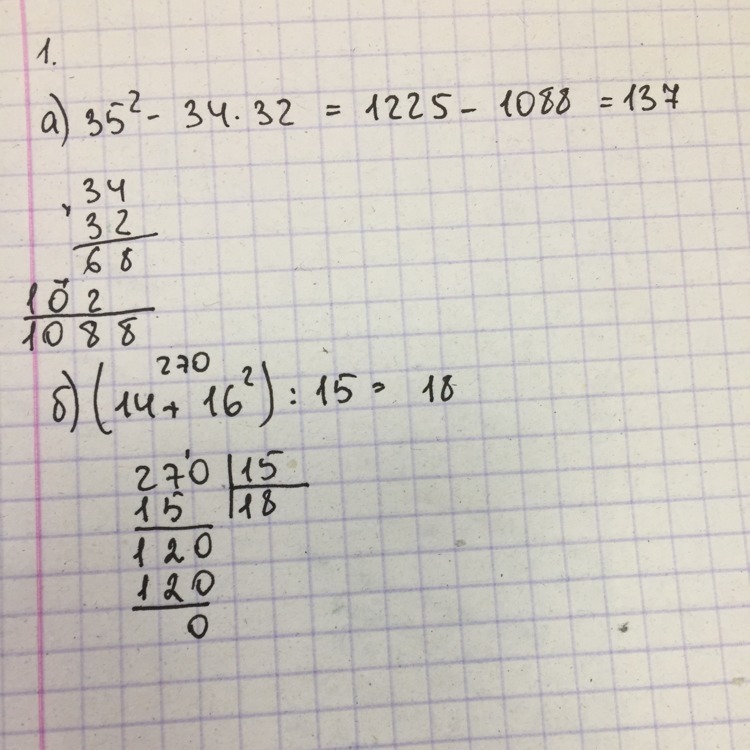 1.
а) 35² - 34 · 32 = 1225 - 1088 = 137
× 34
32
68
102
1088
270
б) (14 + 16²) : 15 = 18
270 | 15
15 | 18
120
120
0